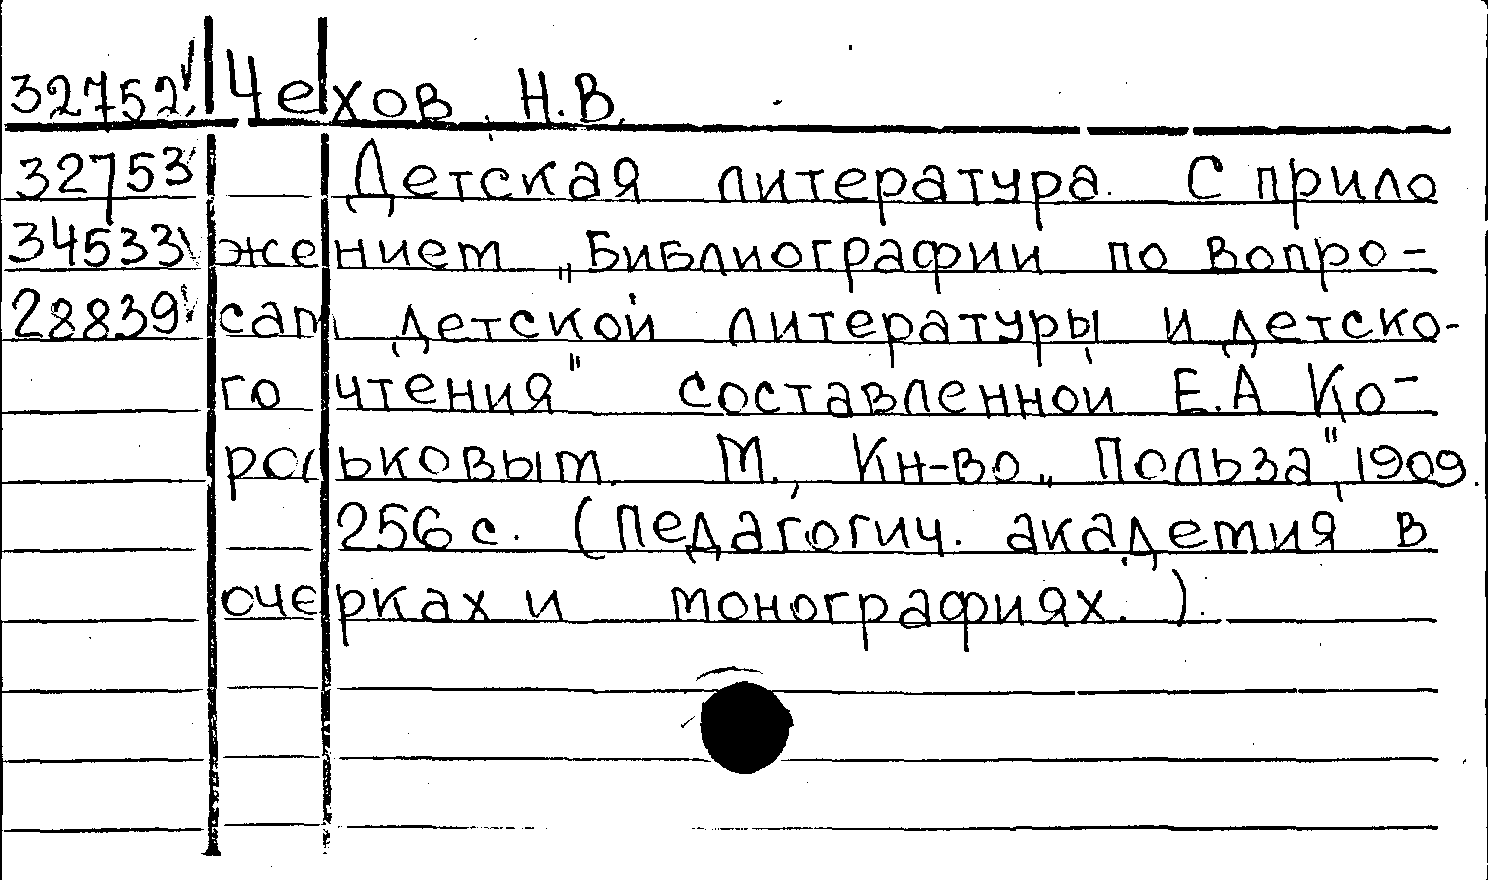 32752 Чехов, Н.В.
32753 Детская литература. С прило
34533 жением „Библиографии по вопро-
28839 сам детской литературы и детско-
го чтения" составленной Е.А Ко-
рольковым. М., Кн-во „Польза", 1909.
256 с. (Педагогич. академия в
очерках и монографиях.).